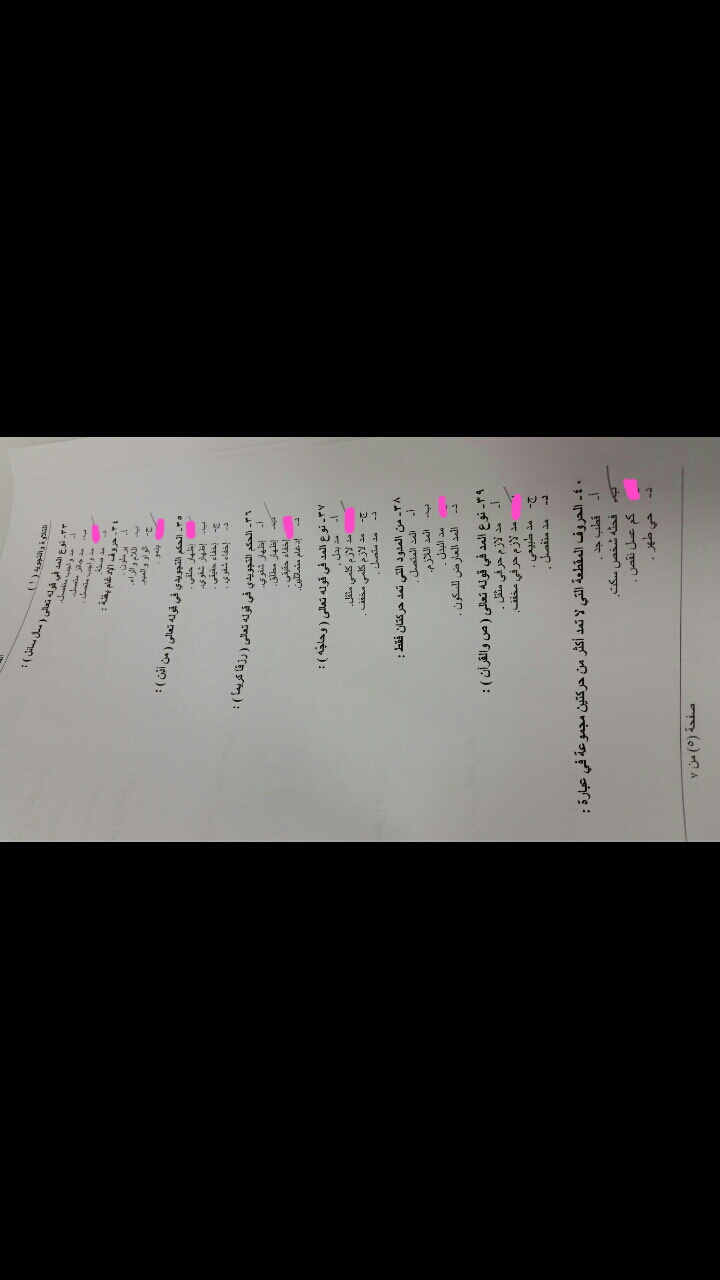 التلاوة والتجويد ( ١ )
٣٣- نوع المد في قوله تعالى ( سأل سائل ) :
أ- مد واجب منفصل.
ب- مد جائز متصل.
مد واجب متصل.
د- مد صلة.
٣٤- حروف الإدغام بغنة :
أ- يرملون.
ب- اللام والراء.
ج- الواو والميم.
ينمو.
٣٥- الحكم التجويدي في قوله تعالى ( من أذن ) :
إظهار حلقي.
ب- إظهار شفوي.
ج- إخفاء حقيقي.
د- إخفاء شفوي.
٣٦- الحكم التجويدي في قوله تعالى ( رزقاً كريماً ) :
أ- إظهار شفوي.
ب- إظهار مطلق.
إخفاء حقيقي.
د- إدغام متماثلين.
٣٧- نوع المد في قوله تعالى ( وحاجّه ) :
أ- مد بدل.
مد لازم كلمي مثقل.
ج- مد لازم كلمي مخفف.
د- مد متصل.
٣٨- من المدود التي تمد حركتان فقط :
أ- المد المتصل.
ب- المد اللازم.
مد البدل.
د- المد العارض للسكون.
٣٩- نوع المد في قوله تعالى ( ص والقرآن ) :
أ- مد لازم حرفي مثقل.
مد لازم حرفي مخفف.
ج- مد طبيعي.
د- مد منفصل.
٤٠- الحروف المقطعة التي لا تمد أكثر من حركتين مجموعة في عبارة :
أ- قطب جد.
ب- فحثه شخص سكت.
كم عسل نقص.
د- حي طهر.
صفحة (٥) من ٧